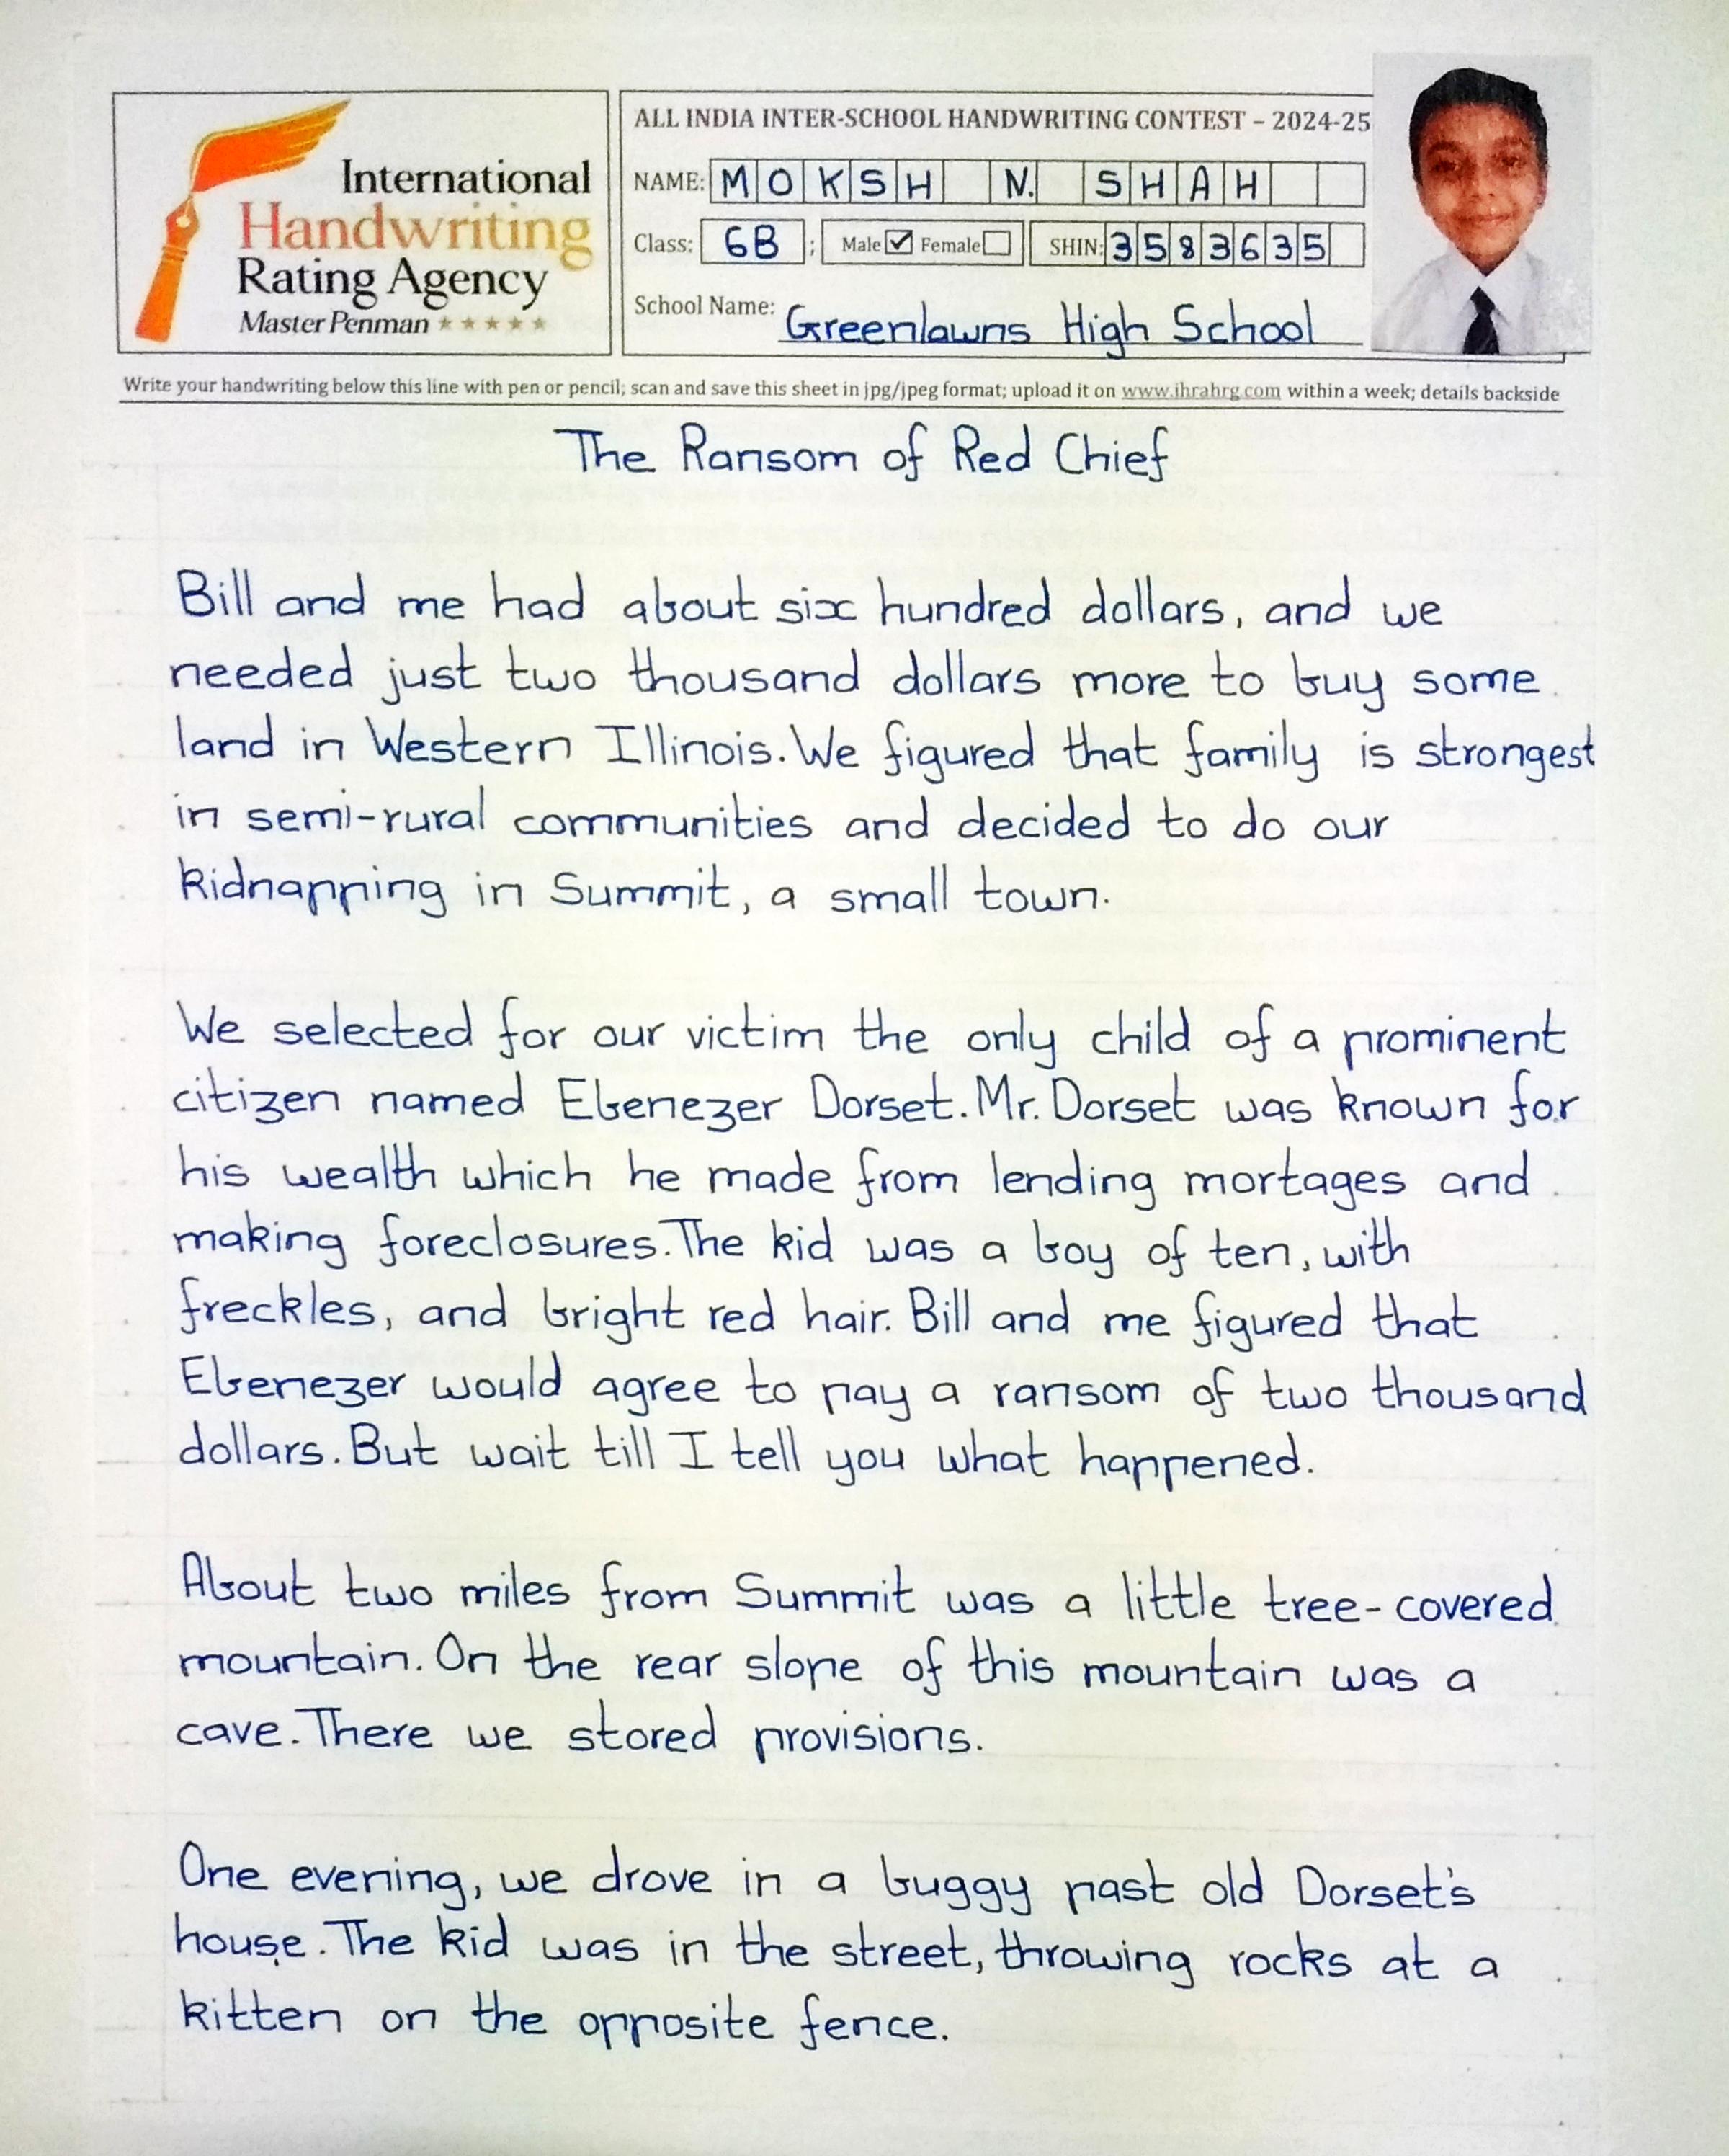 International
Handwriting
Rating Agency
Master Penman ★★★★★
ALL INDIA INTER-SCHOOL HANDWRITING CONTEST – 2024-25
NAME: MOKSH N. SHAH
Class: 6B ; Male ☑ Female ☐ SHIN: 3583635
School Name: Greenlawns High School
Write your handwriting below this line with pen or pencil; scan and save this sheet in jpg/jpeg format; upload it on www.ihrahrg.com within a week; details backside
The Ransom of Red Chief
Bill and me had about six hundred dollars, and we
needed just two thousand dollars more to buy some
land in Western Illinois. We figured that family is strongest
in semi-rural communities and decided to do our
kidnapping in Summit, a small town.
We selected for our victim the only child of a prominent
citizen named Ebenezer Dorset. Mr. Dorset was known for
his wealth which he made from lending mortages and
making foreclosures. The kid was a boy of ten, with
freckles, and bright red hair. Bill and me figured that
Ebenezer would agree to pay a ransom of two thousand
dollars. But wait till I tell you what happened.
About two miles from Summit was a little tree-covered
mountain. On the rear slope of this mountain was a
cave. There we stored provisions.
One evening, we drove in a buggy past old Dorset's
house. The kid was in the street, throwing rocks at a
kitten on the opposite fence.